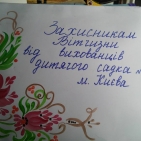 Захисникам
Вітчизни
від вихованців
дитячого садка №
м. Києва